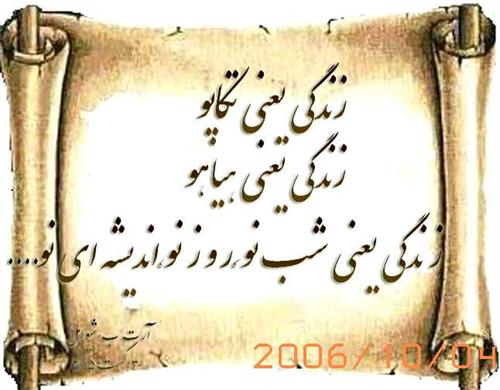 زندگی یعنی تکاپو
زندگی یعنی هیاهو
زندگی یعنی شب نو، روز نو، اندیشه ای نو....
2006/10/04